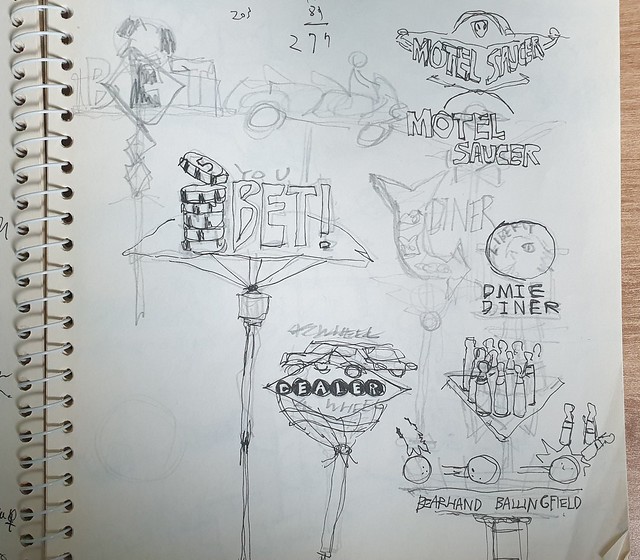 203
89
277
MOTEL SAUCER
BET
MOTEL
SAUCER
YOU
BET!
DINER
LIBERTY
DMIE
DINER
WHEEL
DEALER
WHEEL
BEARHAND BALLINGFIELD